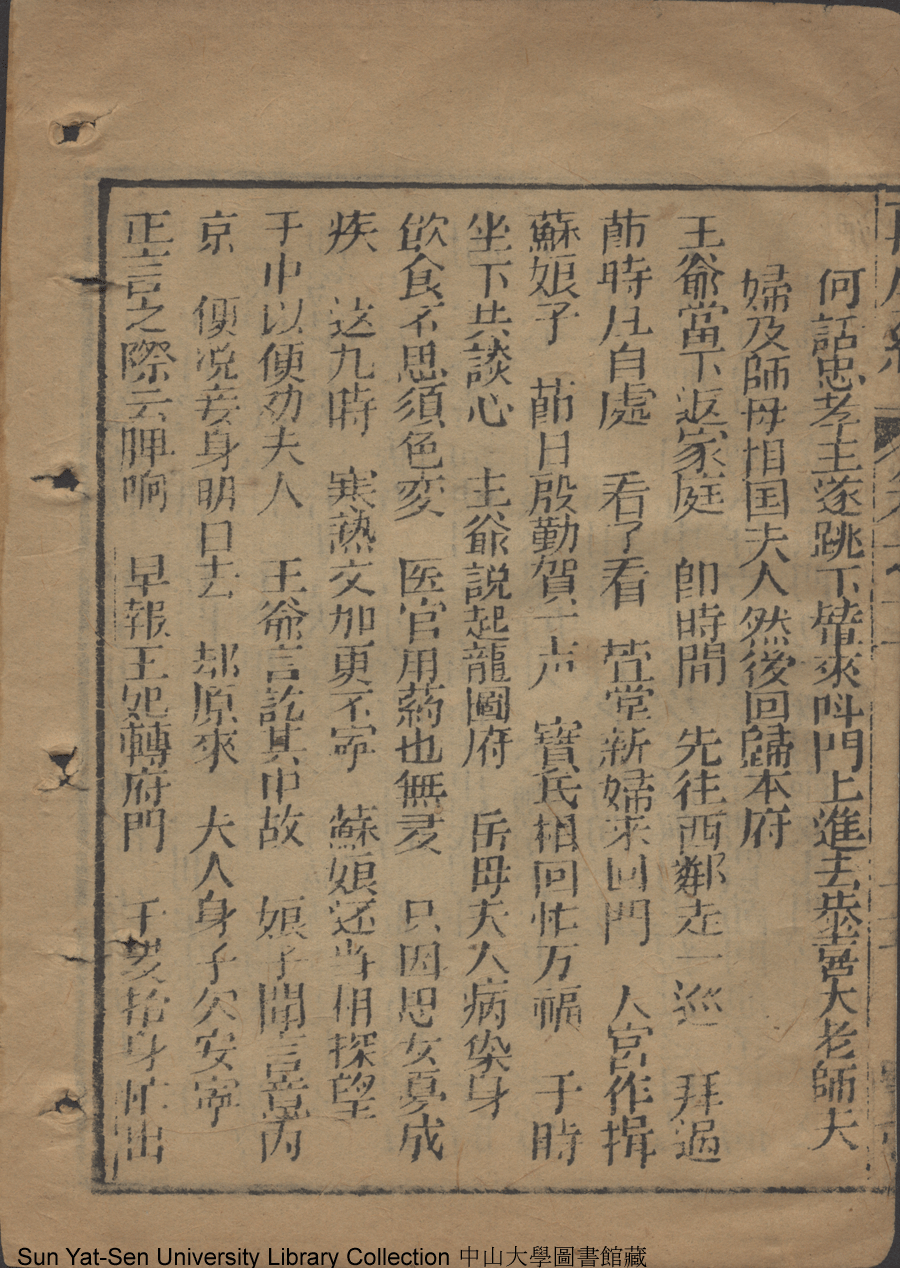 何話忠孝王遂跳下轎來呌門上進去恭喜大老師夫
婦及師母相国夫人然後回歸本府
王爺當下返家庭 卽時間 先往西鄰走一巡 拜過
莭時凡自處 看了看 萱堂新婦來回門 人宮作揖
蘇娘子 莭日殷勤賀一声 寳氏相回忙万福 于時
坐下共談心 王爺説起龍圖府 岳母夫人病染身
飲食不思須色変 医官用葯也無灵 只因思女憂成
疾 这九時 寒熱交加更不寧 蘇娘还当相探望
于中以便劝夫人 王爺言訖其中故 娘子聞言意内
京 便说妾身明日去 却原來 夫人身子欠安寧
正言之際云牌响 早報王妃轉府門 于爰抬身忙出
Sun Yat-Sen University Library Collection 中山大學圖書館藏